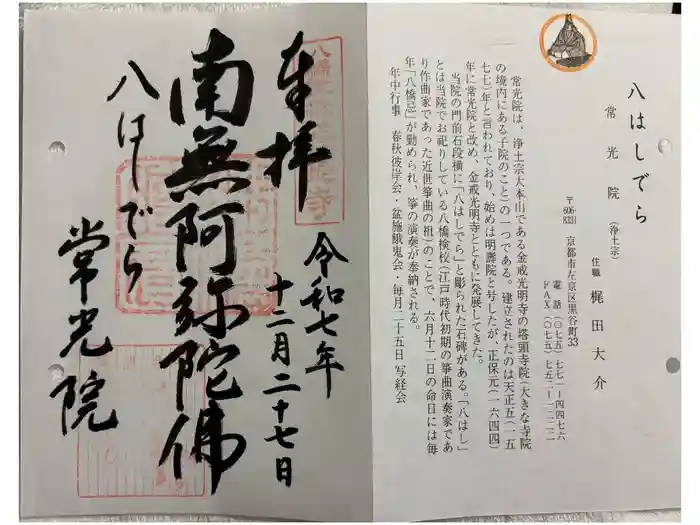 八はしでら
常光院(浄土宗)
住職 梶田大介
〒606-8331 京都市左京区黒谷町33
電話(〇七五)七七一ー四四七六
FAX(〇七五)七五二ー一二二二
常光院は、浄土宗大本山である金戒光明寺の塔頭寺院(大きな寺院
の境内にある子院のこと)の一つである。建立されたのは天正五(一五
七七)年と言われており、始めは明壽院と号したが、正保元(一六四四)
年に常光院と改め、金戒光明寺とともに発展してきた。
当院の門前石段横に「八はしでら」と彫られた石碑がある。「八はし」
とは当院でお祀りしている八橋検校(江戸時代初期の箏曲演奏家であ
り作曲家であった近世箏曲の祖)のことで、六月十二日の命日には毎
年「八橋忌」が勤められ、箏の演奏が奉納される。
年中行事 春秋彼岸会・盆施餓鬼会・毎月二十五日 写経会
奉拝
令和七年
十二月二十七日
南無阿弥陀佛
八はしでら
常光院